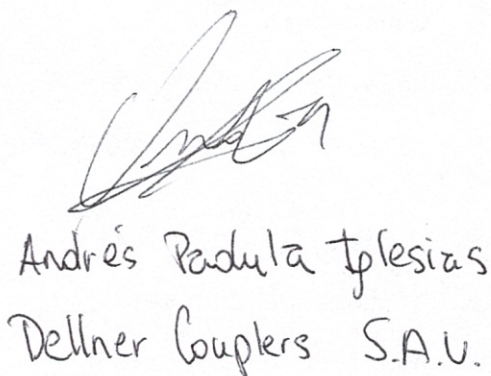 Andrés Padula Iglesias
Dellner Couplers S.A.U.